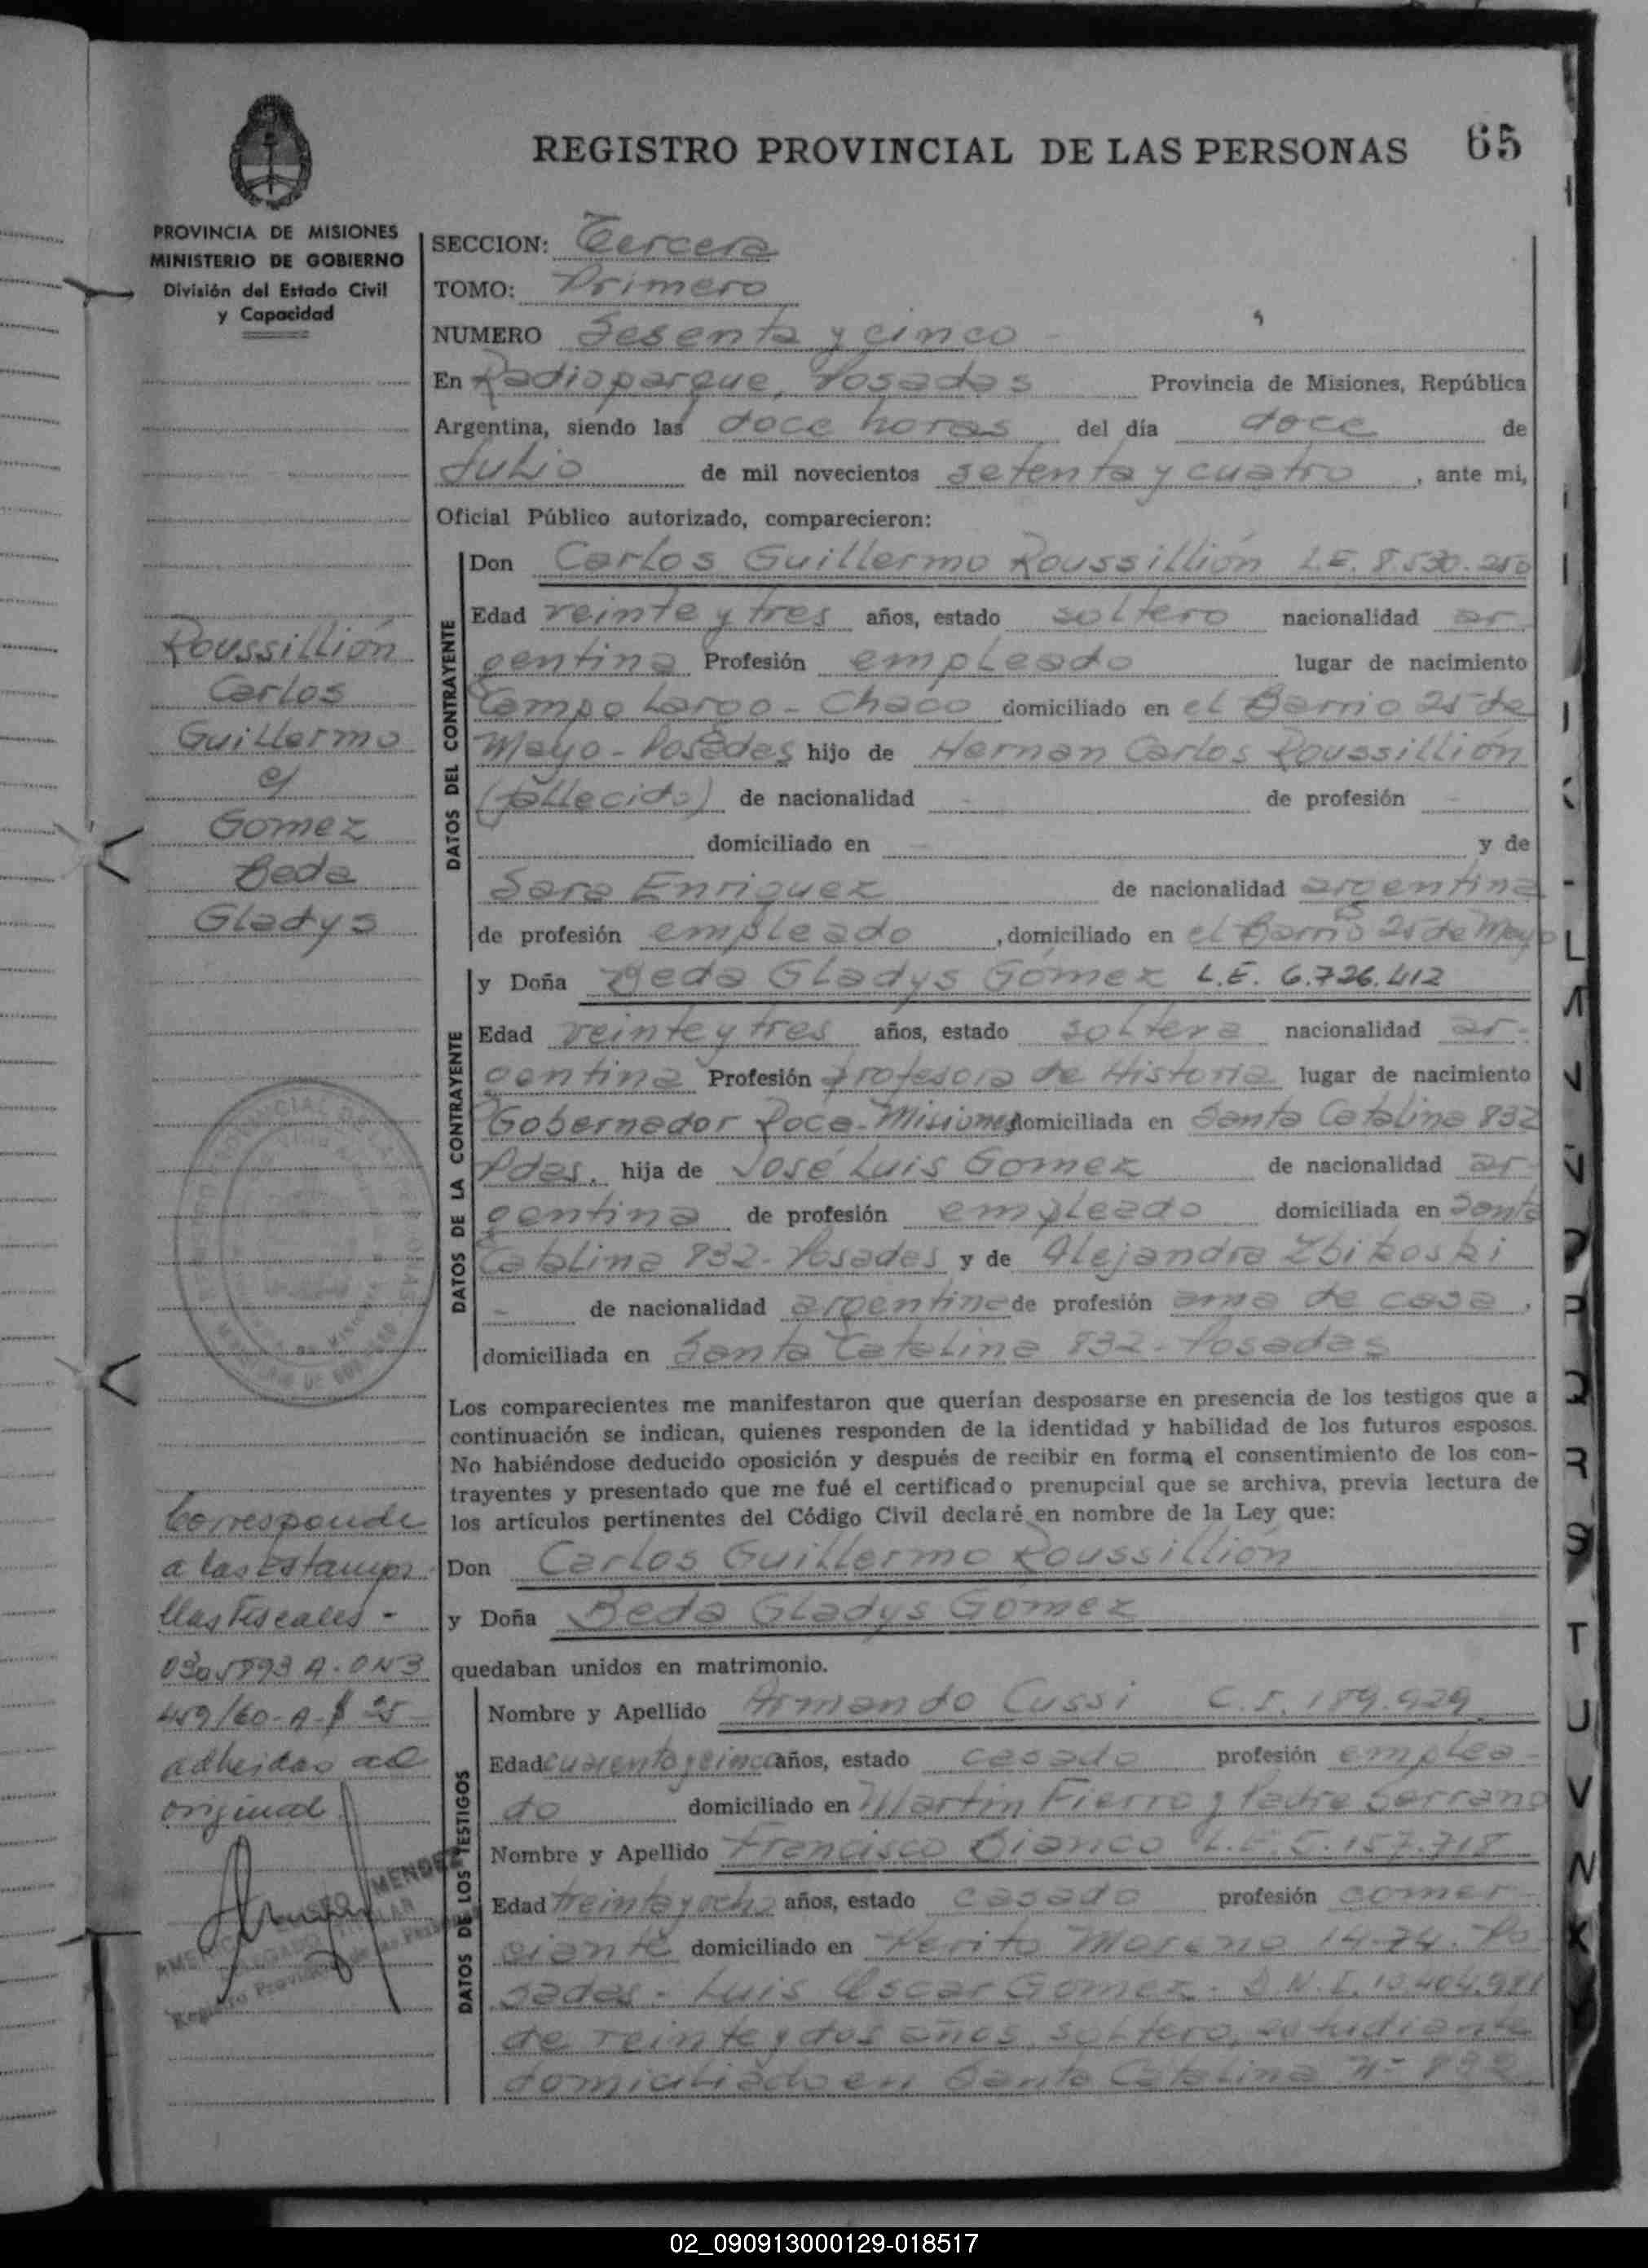 REGISTRO PROVINCIAL DE LAS PERSONAS 65
PROVINCIA DE MISIONES
MINISTERIO DE GOBIERNO
División del Estado Civil
y Capacidad
SECCION: Tercera
TOMO: Primero
NUMERO Sesenta y cinco
En Radioparque, Posadas Provincia de Misiones, República
Argentina, siendo las doce horas del día doce de
Julio de mil novecientos setenta y cuatro, ante mi,
Oficial Público autorizado, comparecieron:
DATOS DEL CONTRAYENTE
Don Carlos Guillermo Roussillión L.E. 8.530.250
Edad veinte y tres años, estado soltero nacionalidad ar-
gentina Profesión empleado lugar de nacimiento
Campo Largo - Chaco domiciliado en el Barrio 25 de
Mayo - Posadas hijo de Hernan Carlos Roussillión
(fallecido) de nacionalidad - de profesión -
domiciliado en - y de
Sara Enriquez de nacionalidad argentina
de profesión empleado, domiciliado en el Barrio 25 de Mayo
DATOS DE LA CONTRAYENTE
y Doña Beda Gladys Gómez L.E. 6.726.412
Edad veinte y tres años, estado soltera nacionalidad ar-
gentina Profesión profesora de Historia lugar de nacimiento
Gobernador Roca-Misiones domiciliada en Santa Catalina 832
Pdas. hija de José Luis Gomez de nacionalidad ar-
gentina de profesión empleado domiciliada en Santa
Catalina 832 - Posadas y de Alejandra Zbikoski
- de nacionalidad argentina de profesión ama de casa,
domiciliada en Santa Catalina 832 - Posadas
Los comparecientes me manifestaron que querían desposarse en presencia de los testigos que a
continuación se indican, quienes responden de la identidad y habilidad de los futuros esposos.
No habiéndose deducido oposición y después de recibir en forma el consentimiento de los con-
trayentes y presentado que me fué el certificado prenupcial que se archiva, previa lectura de
los artículos pertinentes del Código Civil declaré en nombre de la Ley que:
Don Carlos Guillermo Roussillión
y Doña Beda Gladys Gomez
quedaban unidos en matrimonio.
DATOS DE LOS TESTIGOS
Nombre y Apellido Armando Cussi C.I. 189.929
Edad cuarenta y cinco años, estado casado profesión emplea-
do domiciliado en Martin Fierro y Padre Serrano
Nombre y Apellido Francisco Bianco L.E. 5.157.718
Edad treinta y ocho años, estado casado profesión comer-
ciante domiciliado en Perito Moreno 1474. Po
sadas. Luis Oscar Gomez. D.N.I. 10.404.981
de veinte y dos años, soltero, estudiante
domiciliado en Santa Catalina Nº 832.
Roussillión
Carlos
Guillermo
c/
Gomez
Beda
Gladys
Corresponde
a las Estampi
llas Fiscales -
459/60-A-$ 25-
adheridas al
original
MENDEZ
02_090913000129-018517